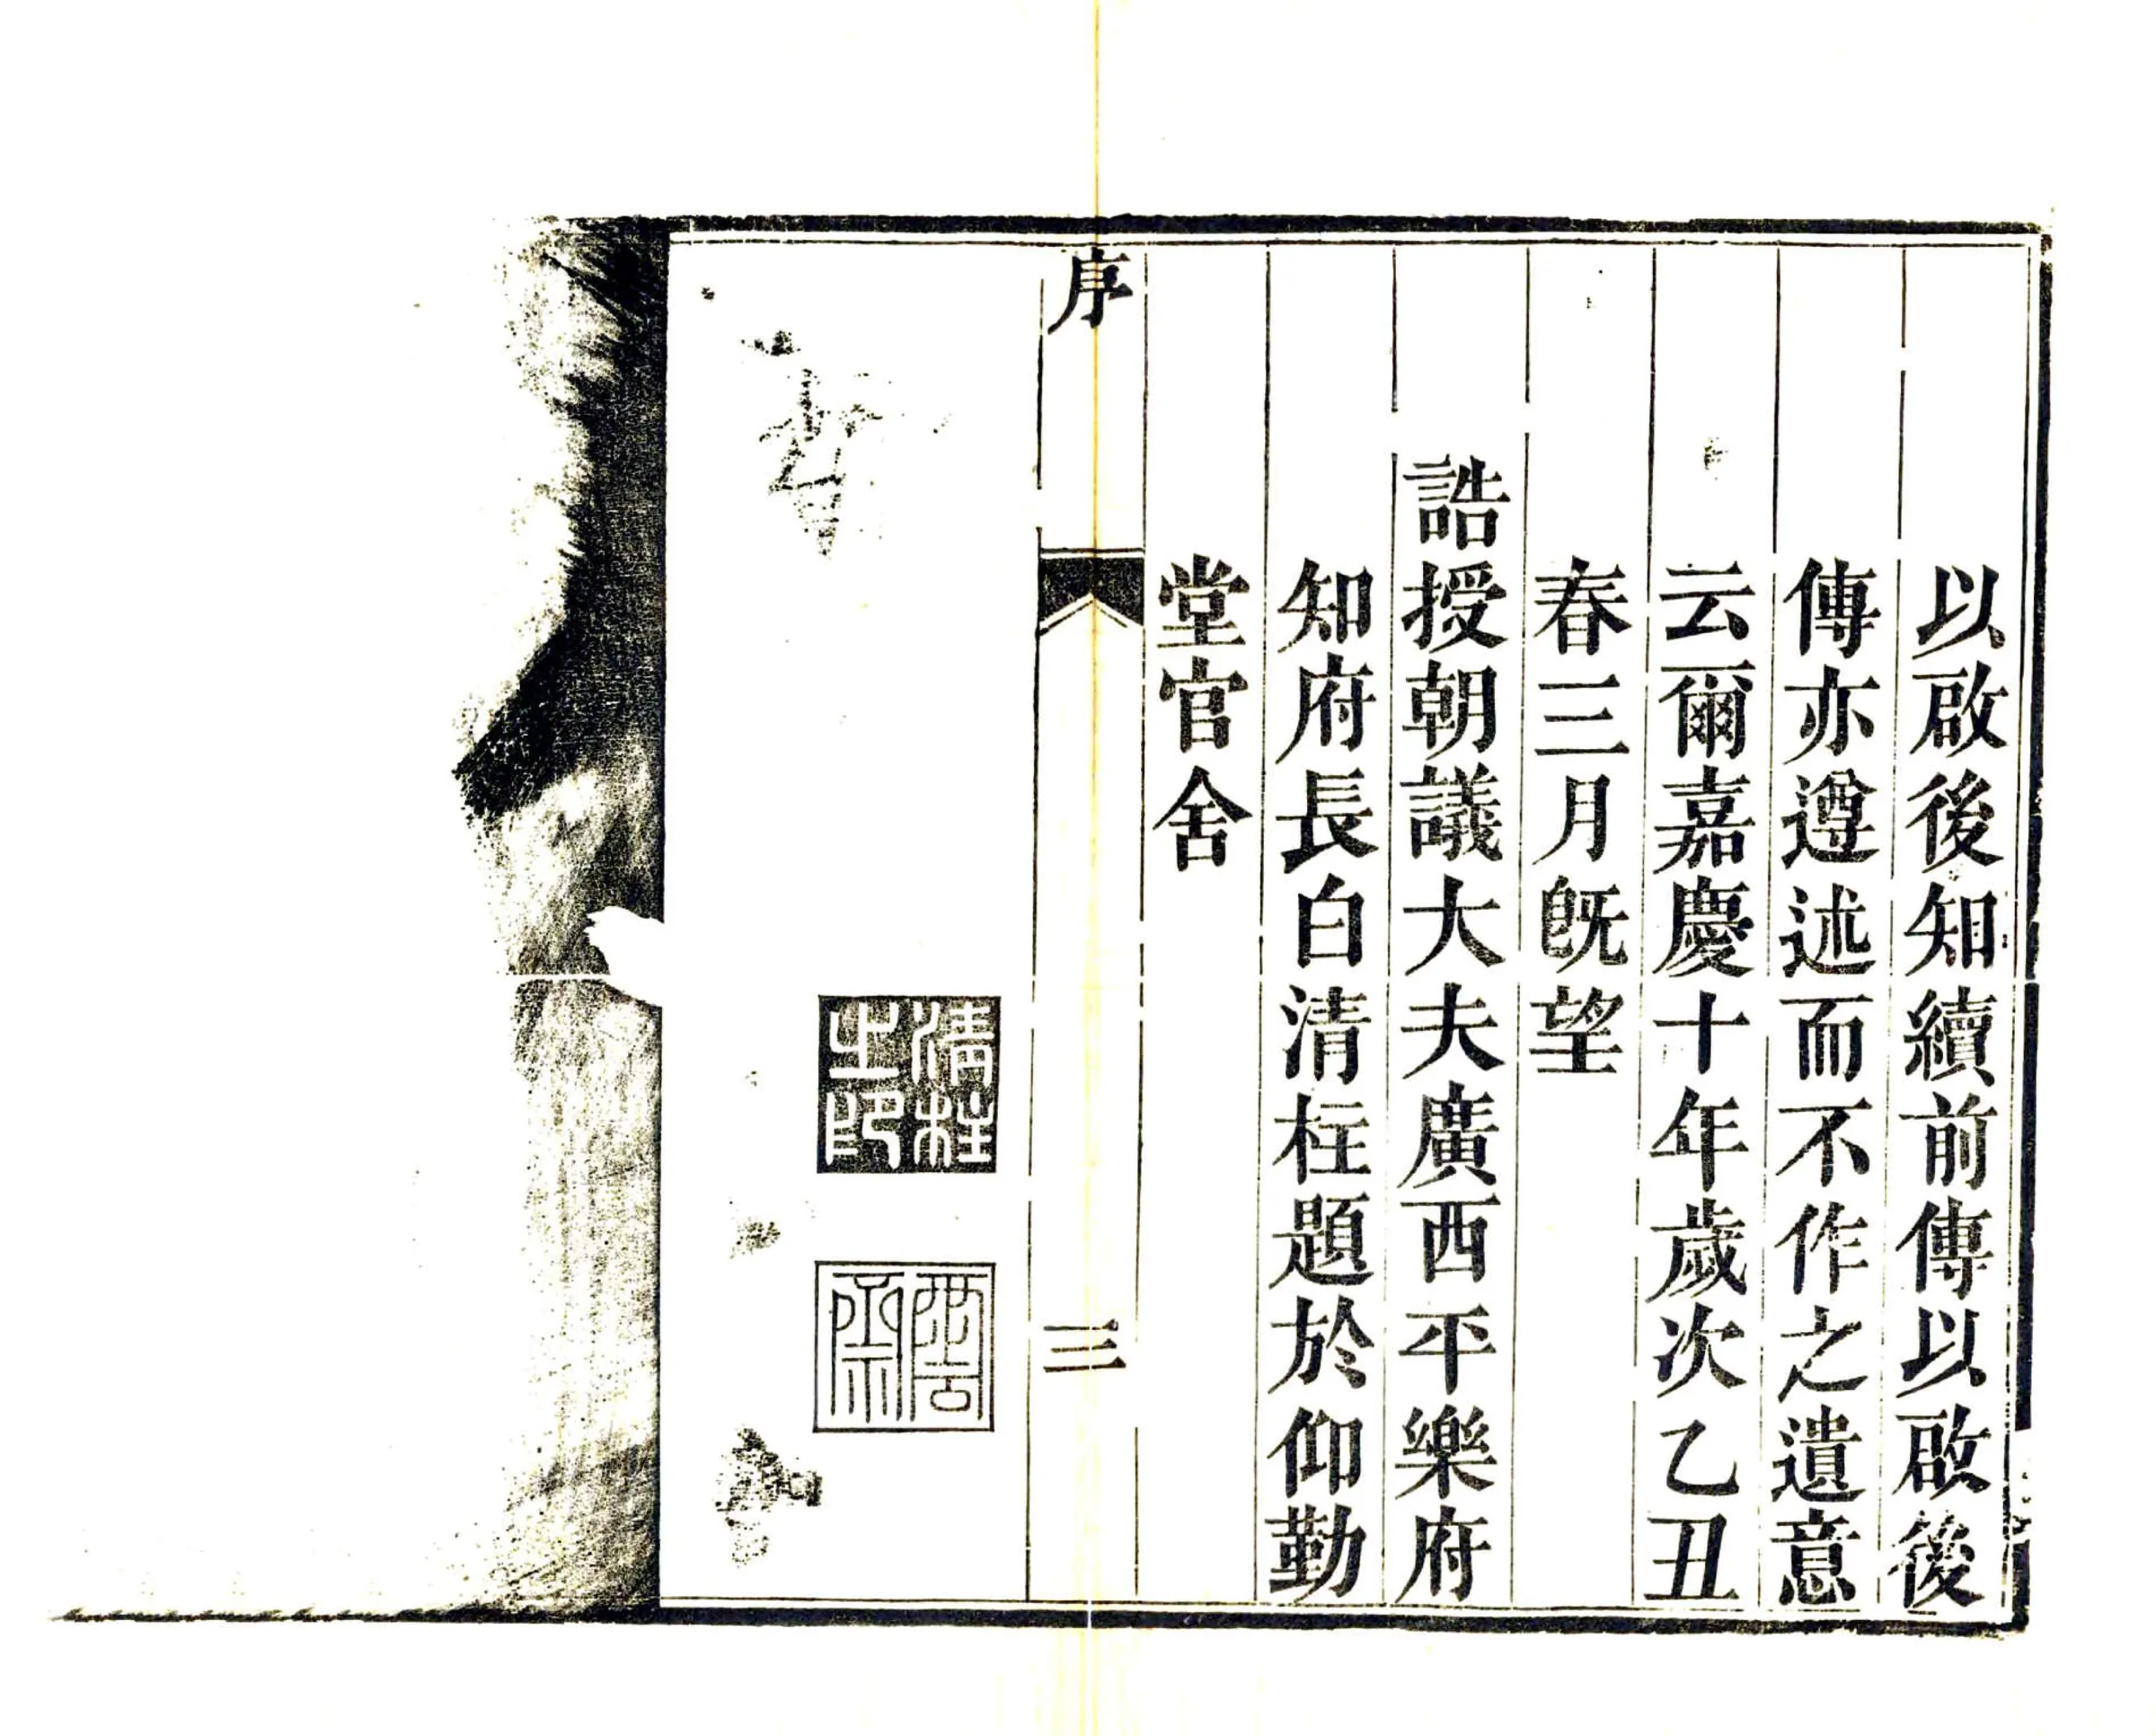 以啟後知續前傳以啟後
傳亦遵述而不作之遺意
云爾嘉慶十年歲次乙丑
春三月旣望
誥授朝議大夫廣西平樂府
知府長白清柱題於仰勤
堂官舍
序
三
清柱
之印